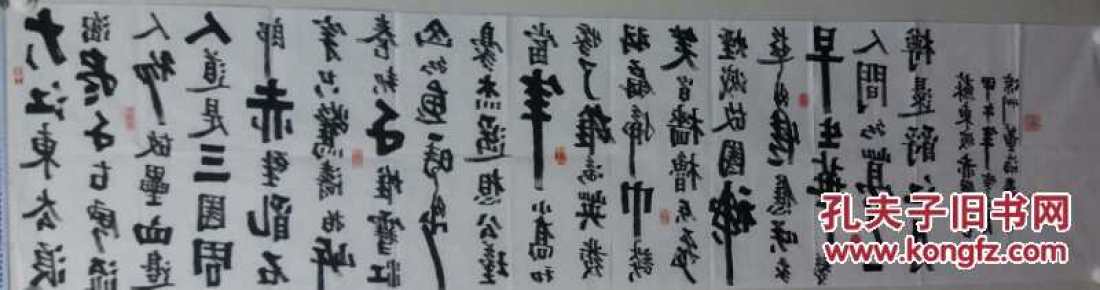 大江東去浪
淘盡千古風流
人物故壘西邊
人道是三國周
郎赤壁亂石
穿空驚濤拍岸
卷起千堆雪江山
如畫一時多少
豪杰遙想公瑾
當年小喬初
嫁了雄姿英發
羽扇綸巾談
笑間檣櫓灰飛
煙滅故國神
早生華
人間如夢
樽還酹江
蘇東坡赤
孔夫子旧书网
www.kongfz.com